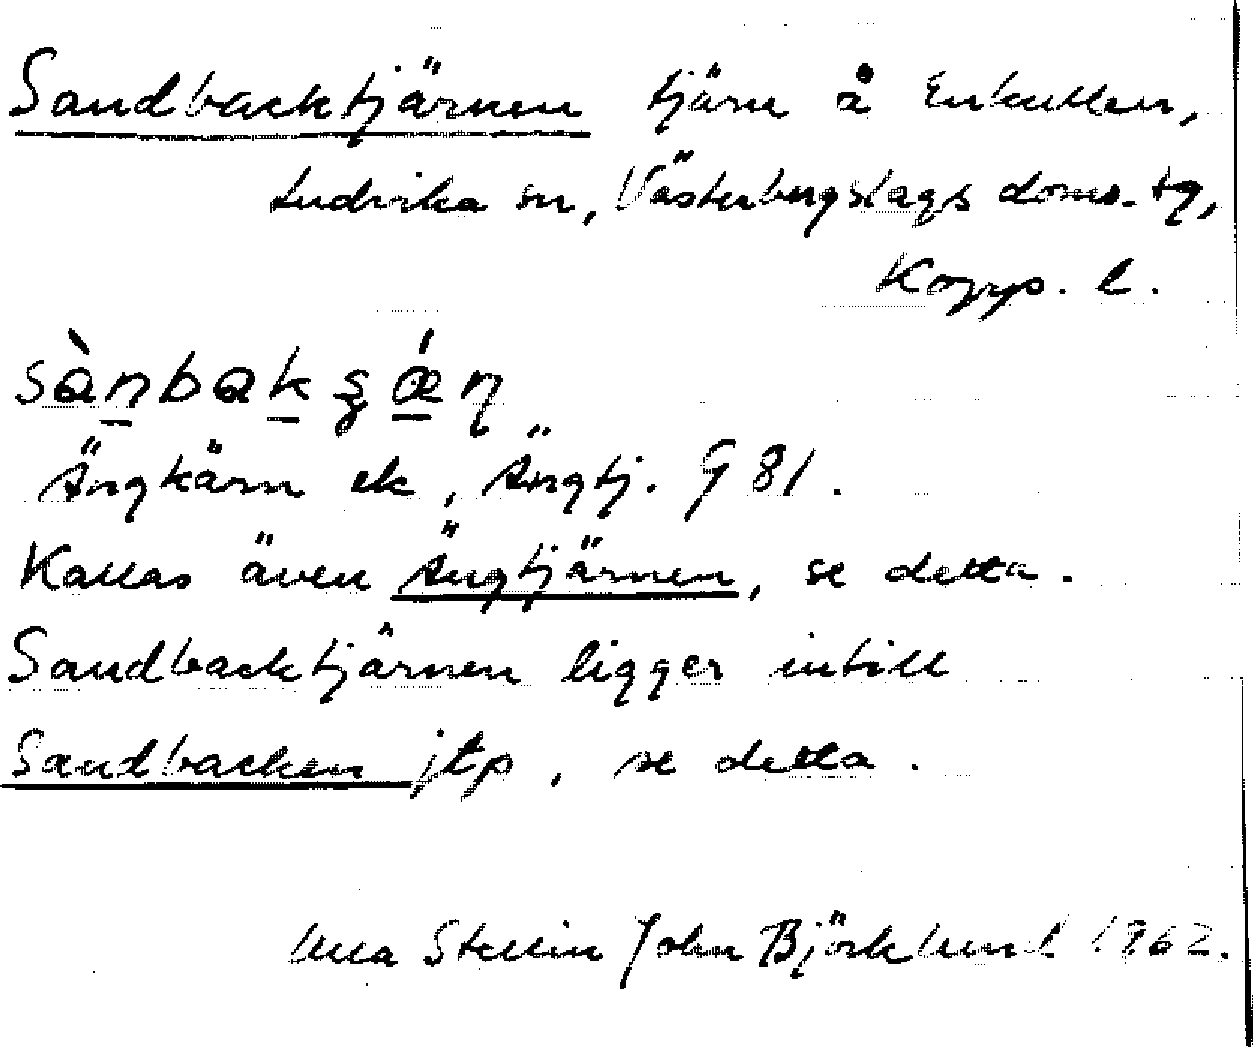 Sandbacktjärnen tjärn å Enkullen,
Ludvika sn, Västerbergslags doms. tg,
Kopp. l.
sànbakʂǽn
Ängkärn ek, Ängtj. G 81.
Kallas även Ängtjärnen, se detta.
Sandbacktjärnen ligger intill
Sandbacken jtp, se detta.
Ulla Stellin John Björklund 1962.